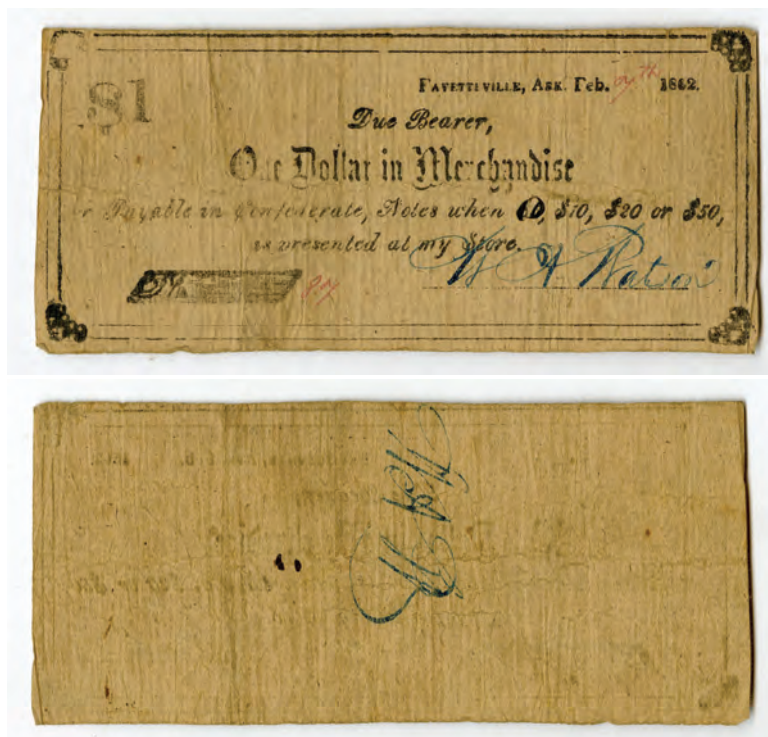 $1
FAYETTEVILLE, ARK. Feb. 7th 1862.
Due Bearer,
One Dollar in Merchandise
or Payable in Confederate, Notes when $10, $20 or $50,
is presented at my Store.
W A Watson